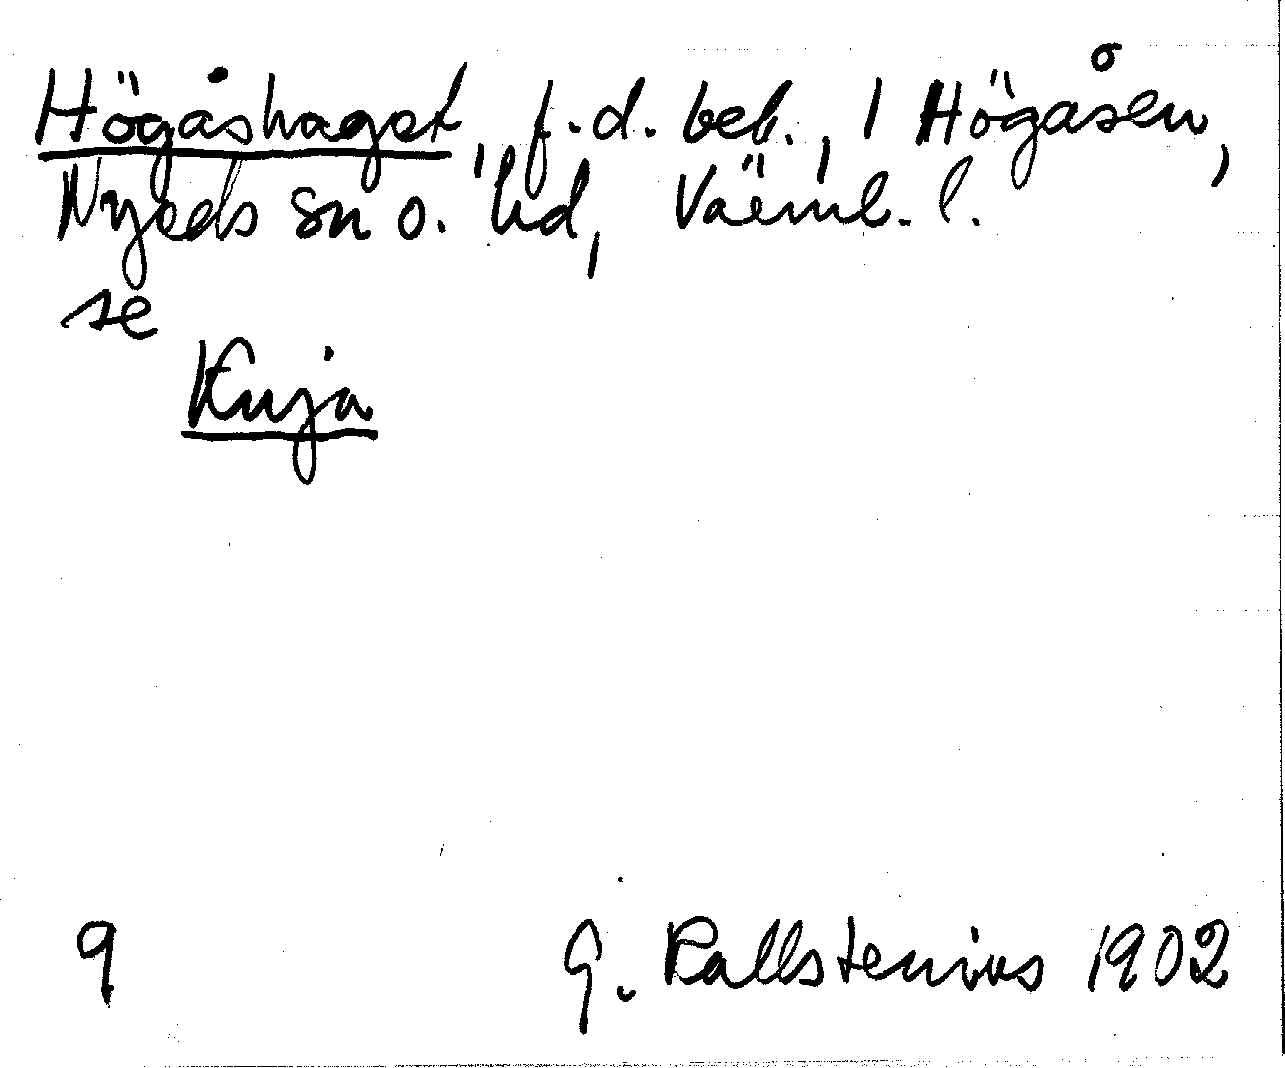 Högåshaget, f.d. beb., 1 Högåsen,
Nyeds sn o. hd, Värml. l.
se
Kuja
9 G. Kallstenius 1902